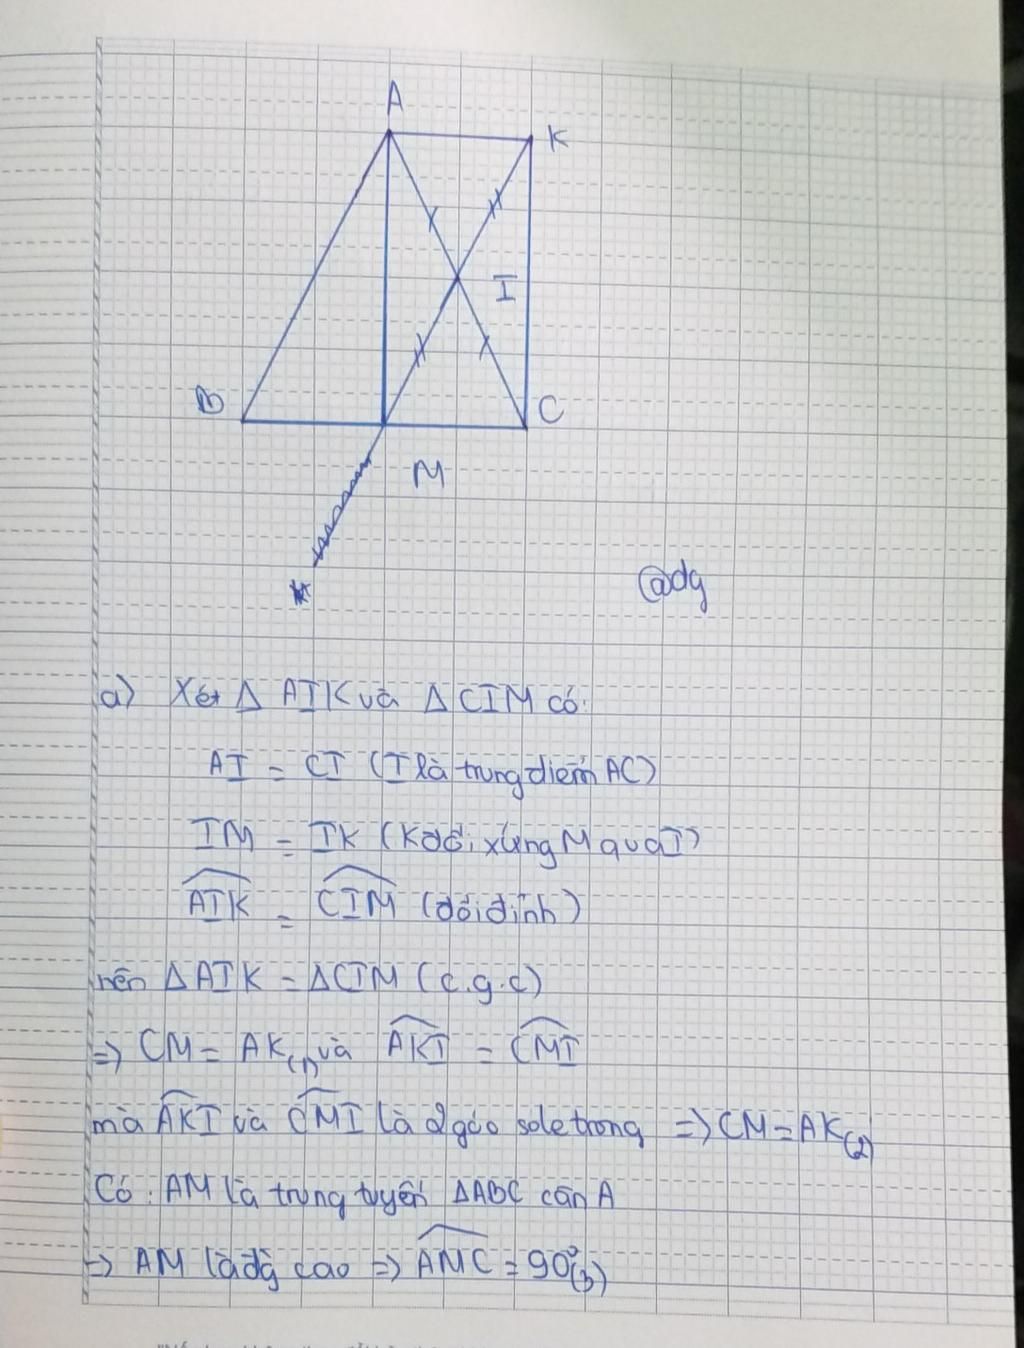 A
K
I
B
C
M
@dg
a) Xét Δ AIK và Δ CIM có:
AI = CI (I là trung điểm AC)
IM = IK (K đối xứng M qua I)
AIK = CIM (đối đỉnh)
nên ΔAIK = ΔCIM (c.g.c)
=> CM = AK (1) và AKI = CMI
mà AKI và CMI là 2 góc sole trong => CM = AK (2)
Có : AM là trung tuyến ΔABC cân A
=> AM là đg cao => AMC = 90° (3)